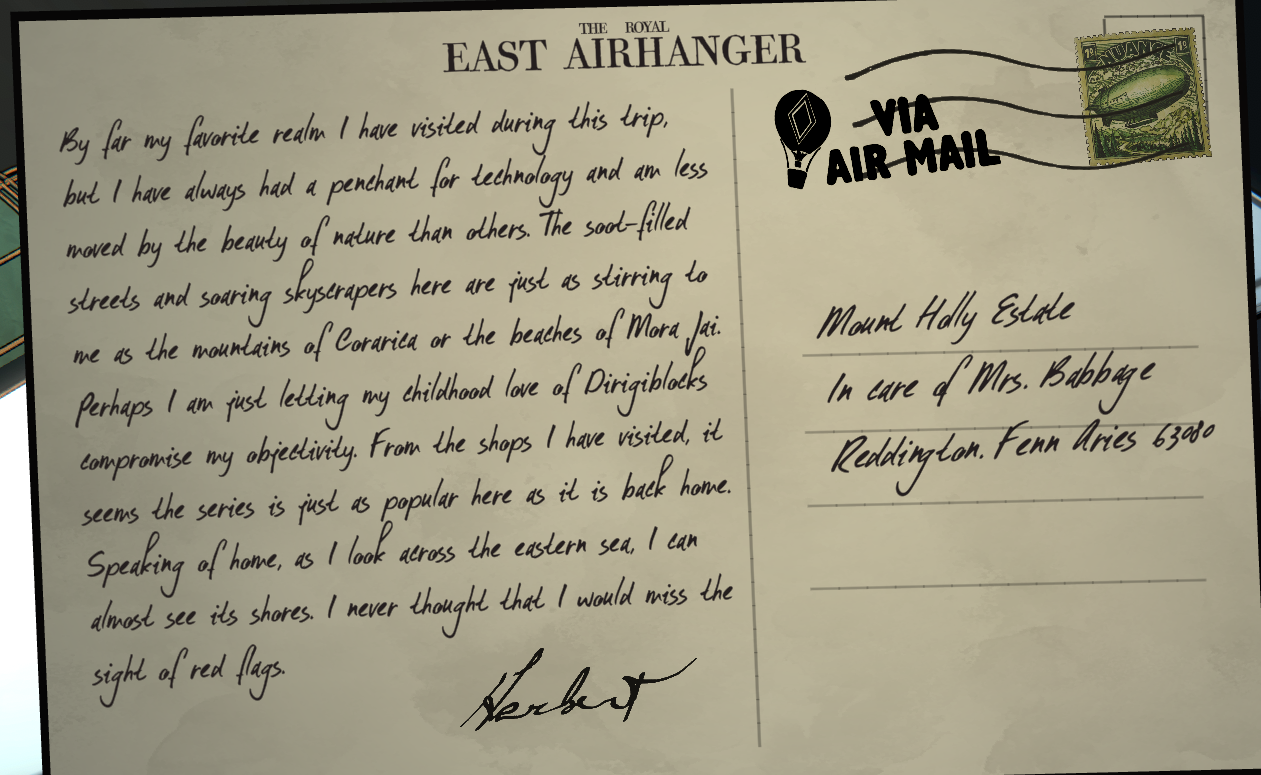 THE ROYAL
EAST AIRHANGER
By far my favorite realm I have visited during this trip,
but I have always had a penchant for technology and am less
moved by the beauty of nature than others. The soot-filled
streets and soaring skyscrapers here are just as stirring to
me as the mountains of Corarica or the beaches of Mora Jai.
Perhaps I am just letting my childhood love of Dirigiblocks
compromise my objectivity. From the shops I have visited, it
seems the series is just as popular here as it is back home.
Speaking of home, as I look across the eastern sea, I can
almost see its shores. I never thought that I would miss the
sight of red flags.
Herbert
VIA
AIR MAIL
Mount Holly Estate
In care of Mrs. Babbage
Reddington. Fenn Aries 63080